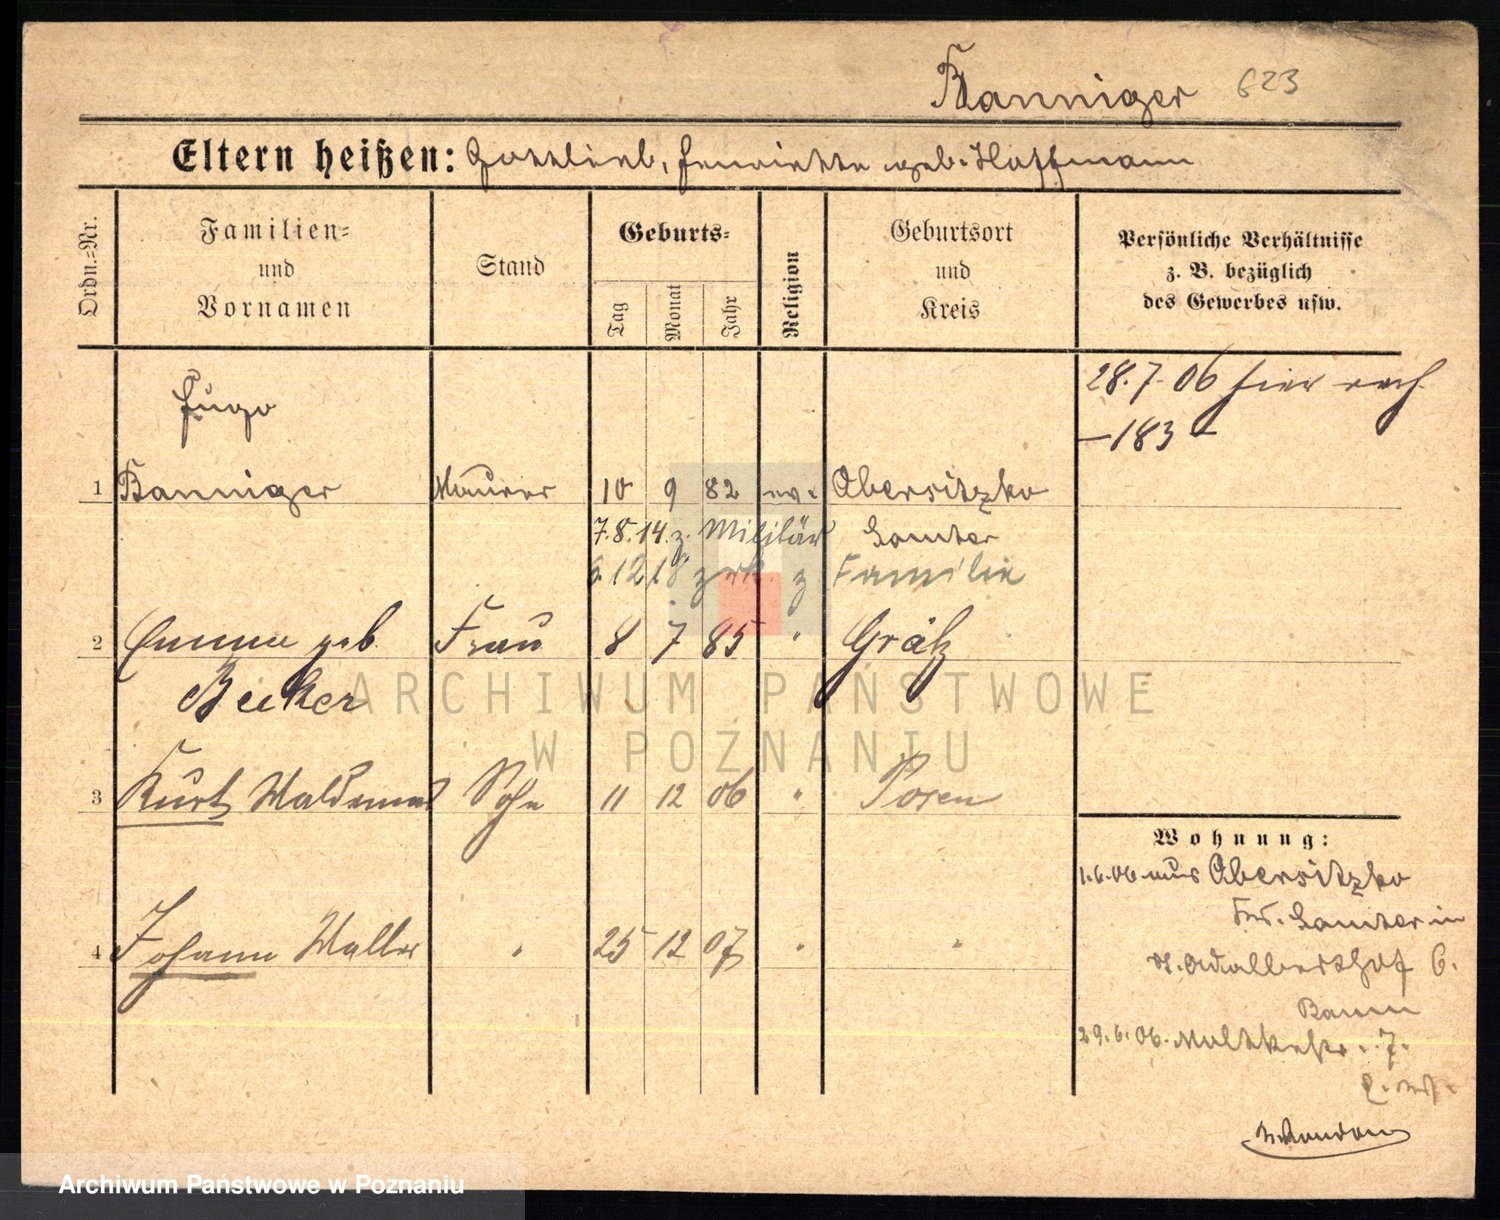 Banniger 623
Eltern heißen: Gottlieb, Henriette geb. Hoffmann
Ordn.-Nr.
Familien-
und
Vornamen
Stand
Geburts-
Tag
Monat
Jahr
Religion
Geburtsort
und
Kreis
Persönliche Verhältnisse
z. B. bezüglich
des Gewerbes usw.
28.7.06 hier
-183-
Hugo
1 Banniger Maurer 10 9 82 ev. Obersitzko
7.8.14. z. Militär Samter
6.12.18 zrk. z Familie
2 Emma geb Frau 8 7 85 " Grätz
Becker
3 Kurt Waldemar Sohn 11 12 06 " Posen
4 Johann Walter " 25 12 07 " "
Wohnung:
1.6.06 aus Obersitzko
Samter in
Adalberthof 6.
Bann
29.6.06. Moltkestr. 7.
ARCHIWUM PAŃSTWOWE
W POZNANIU
Archiwum Państwowe w Poznaniu